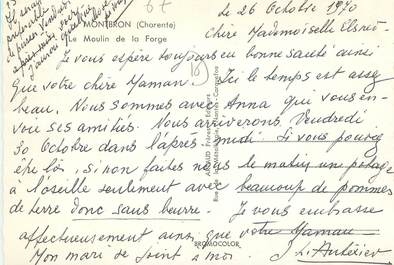 le 26 Octobre 1970
MONTBRON (Charente)
Le Moulin de la Forge
Chère Mademoiselle
Je vous espère toujours en bonne santé ainsi
que votre chère Maman. Ici le temps est assez
beau. Nous sommes avec Anna qui vous en-
voie ses amitiés. Nous arriverons Vendredi
30 Octobre dans l'après-midi. Si vous pouvez
être là, si non faites nous le matin un potage
à l'oseille seulement avec beaucoup de pommes
de terre donc sans beurre. Je vous embrasse
affectueusement ainsi que votre Maman
Mon mari se joint à moi.
PROMOCOLOR